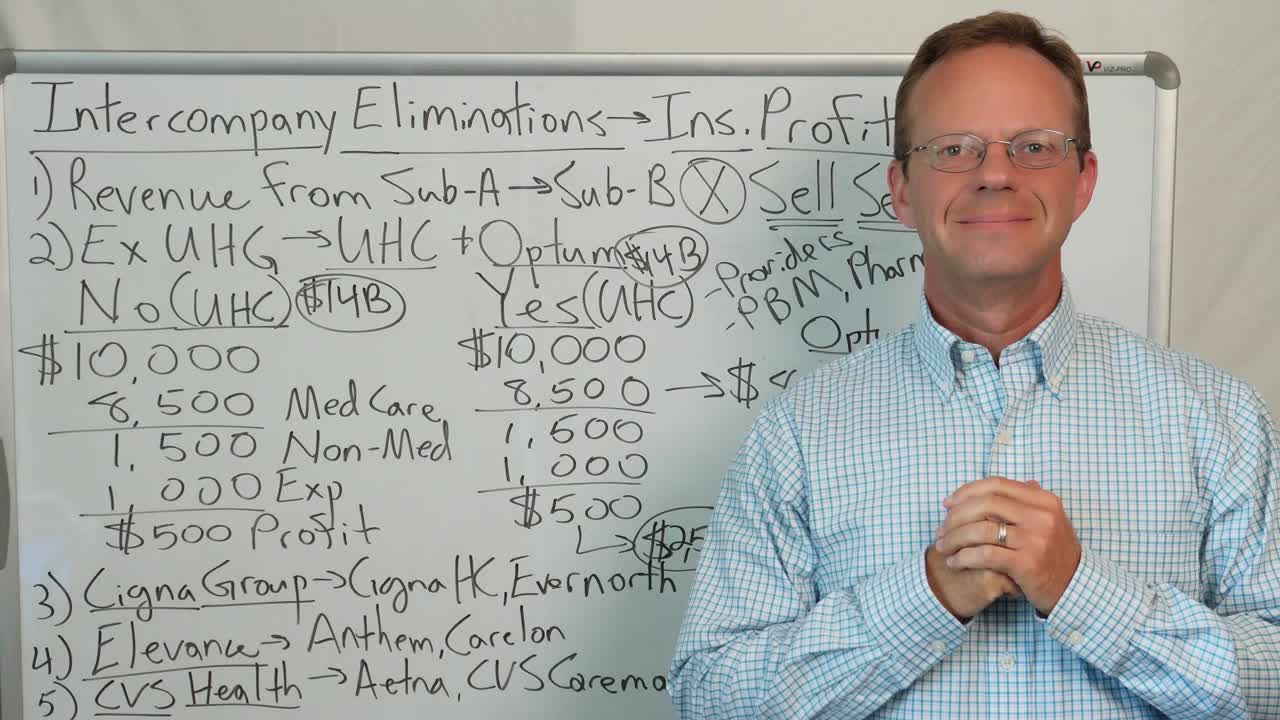 VP VIZ-PRO
Intercompany Eliminations → Ins. Profit
1) Revenue from Sub-A → Sub-B X Sell
2) Ex UHG → UHC + Optum $14B
- Providers
- PBM, Pharm
No (UHC) $14B
Yes (UHC)
$10,000
8,500 Med Care
1,500 Non-Med
1,000 Exp
$500 Profit
$10,000
8,500 → $
1,500
1,000
$500
3) Cigna Group → Cigna HC, Evernorth
4) Elevance → Anthem, Carelon
5) CVS Health → Aetna, CVS Carema